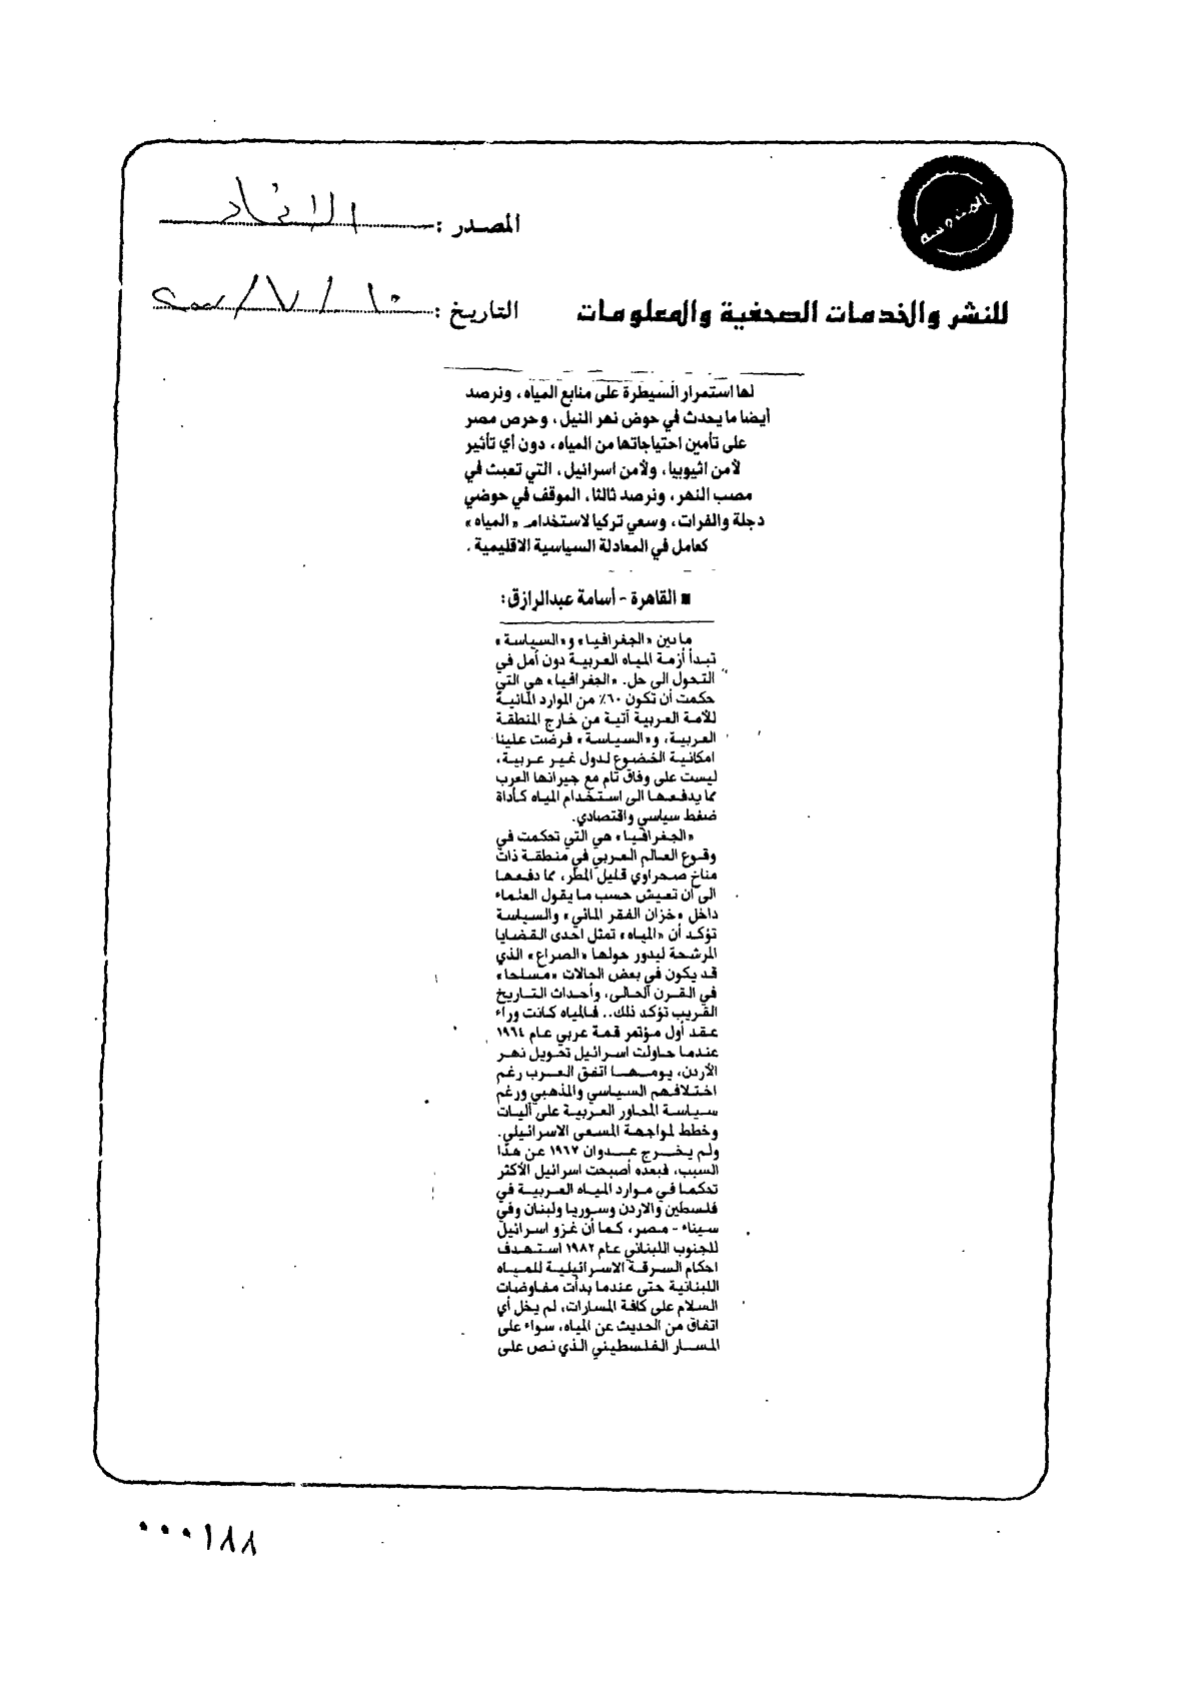 المصدر : الاتحاد
المحروسة
التاريخ : ١٠ / ٧ /
للنشر والخدمات الصحفية والمعلومات
لها استمرار السيطرة على منابع المياه، ونرصد
أيضا ما يحدث في حوض نهر النيل، وحرص مصر
على تأمين احتياجاتها من المياه، دون أي تأثير
لأمن اثيوبيا، ولأمن اسرائيل، التي تعبث في
مصب النهر، ونرصد ثالثا، الموقف في حوضي
دجلة والفرات، وسعي تركيا لاستخدام «المياه»
كعامل في المعادلة السياسية الاقليمية.
■ القاهرة - أسامة عبدالرازق:
ما بين «الجغرافيا» و«السياسة»
تبدأ أزمة المياه العربية دون أمل في
التحول الى حل. «الجغرافيا» هي التي
حكمت أن تكون ٦٠٪ من الموارد المائية
للأمة العربية آتية من خارج المنطقة
العربية، و«السياسة» فرضت علينا
امكانية الخضوع لدول غير عربية،
ليست على وفاق تام مع جيرانها العرب
مما يدفعها الى استخدام المياه كأداة
ضغط سياسي واقتصادي.
«الجغرافيا» هي التي تحكمت في
وقوع العالم العربي في منطقة ذات
مناخ صحراوي قليل المطر، مما دفعها
الى ان تعيش حسب ما يقول العلماء
داخل «خزان الفقر المائي» والسياسة
تؤكد أن «المياه» تمثل احدى القضايا
المرشحة ليدور حولها «الصراع» الذي
قد يكون في بعض الحالات «مسلحا»
في القرن الحالي، وأحداث التاريخ
القريب تؤكد ذلك.. فالمياه كانت وراء
عقد أول مؤتمر قمة عربي عام ١٩٦٤
عندما حاولت اسرائيل تحويل نهر
الأردن، يومها اتفق العرب رغم
اختلافهم السياسي والمذهبي ورغم
سياسة المحاور العربية على آليات
وخطط لمواجهة المسعى الاسرائيلي.
ولم يخرج عدوان ١٩٦٧ عن هذا
السبب، فبعده أصبحت اسرائيل الأكثر
تحكما في موارد المياه العربية في
فلسطين والاردن وسوريا ولبنان وفي
سيناء - مصر، كما أن غزو اسرائيل
للجنوب اللبناني عام ١٩٨٢ استهدف
احكام السرقة الاسرائيلية للمياه
اللبنانية حتى عندما بدأت مفاوضات
السلام على كافة المسارات، لم يخل أي
اتفاق من الحديث عن المياه، سواء على
المسار الفلسطيني الذي نص على
٠٠٠١٨٨